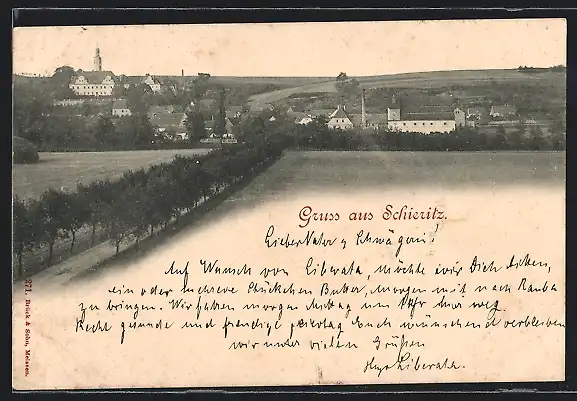 Gruss aus Schieritz.
Lieber Vater & Schwägern!
Auf Wunsch von Liberata, möchte wir Dich bitten,
ein oder mehrere Stückchen Butter, morgen mit nach Rauba
zu bringen. Wir fahren morgen Mittag um Uhr hier weg.
Recht gesunde und freudige Euch wünschend verbleiben
wir unter vielen Grüßen
Liberata.
271 Brück & Sohn, Meissen.